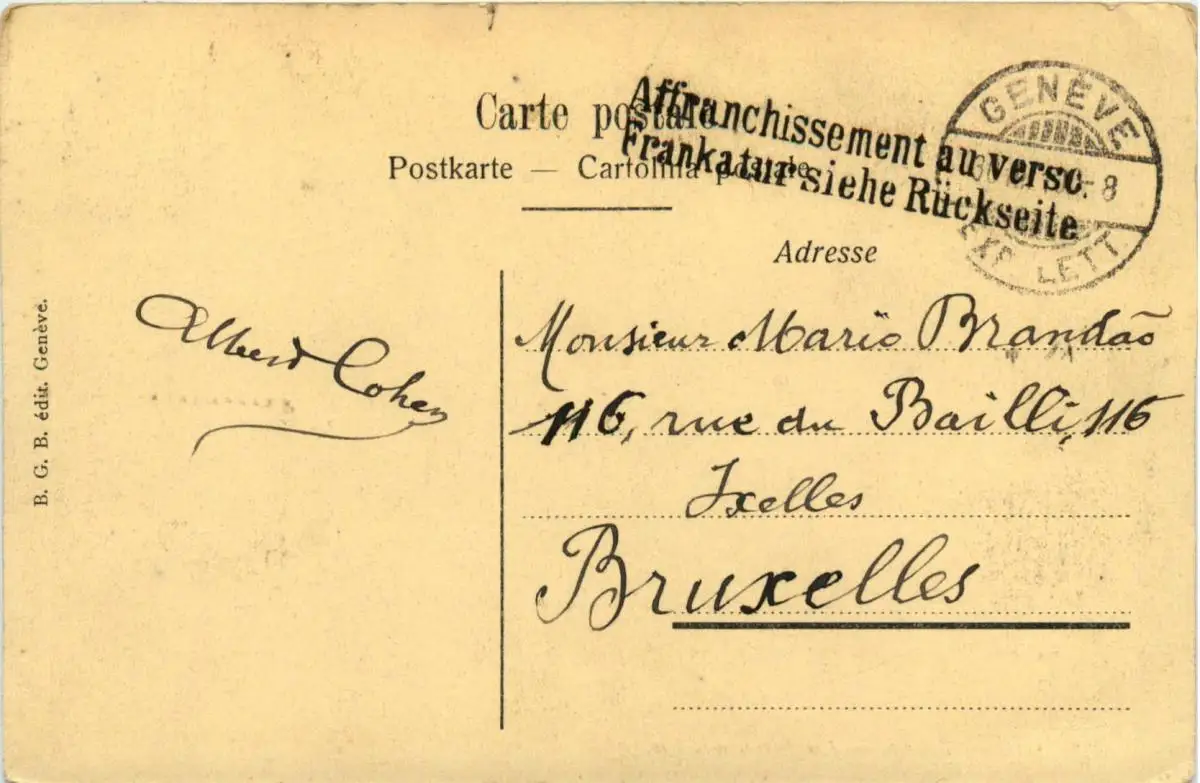 Carte postale
Postkarte — Cartolina postale
Affranchissement au verso.
Frankatur siehe Rückseite
GENÈVE
8
EXP. LETT.
Adresse
B. G. B. édit. Genève.
Albert Cohen
Monsieur Mario Brandão
116, rue du Bailli, 116
Ixelles
Bruxelles